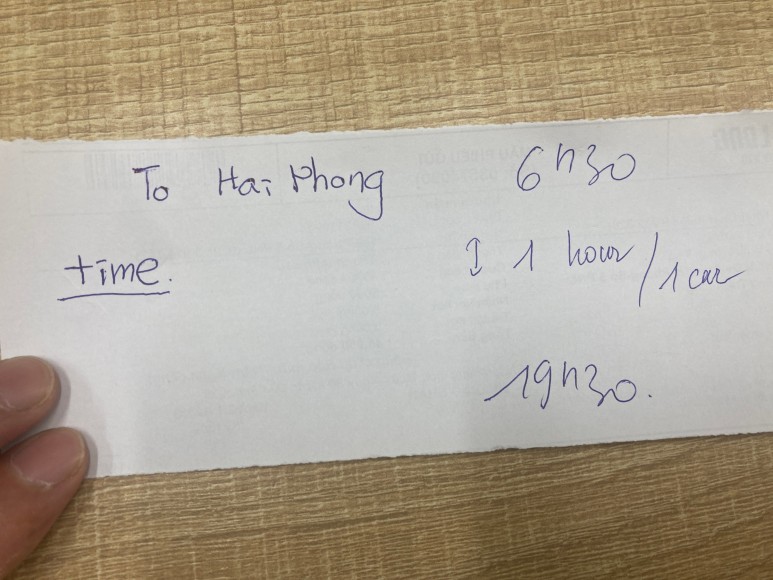 To Hai Phong 6h30
time. ↕ 1 hour / 1 car
19h30.